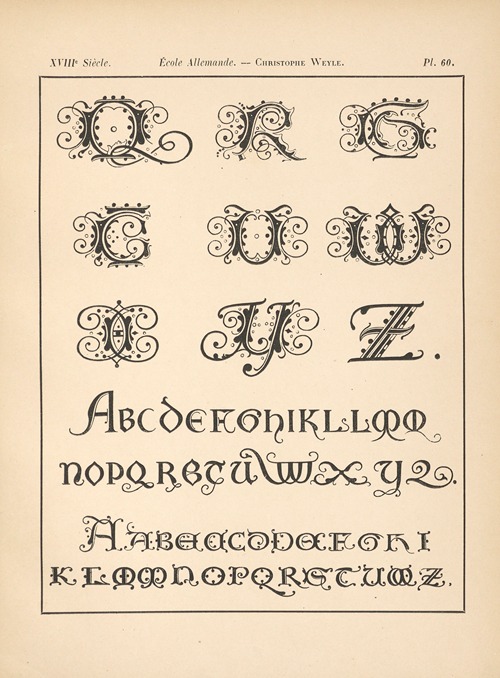 XVIIIᵉ Siècle. École Allemande. — CHRISTOPHE WEYLE. Pl. 60.
Q R S
T U W
X Y Z.
ABCDEFGHIKLLMM
NOPQRSTUWX YZ.
AABECCDDEFGHI
KLMMNOPQRSTUWZ.